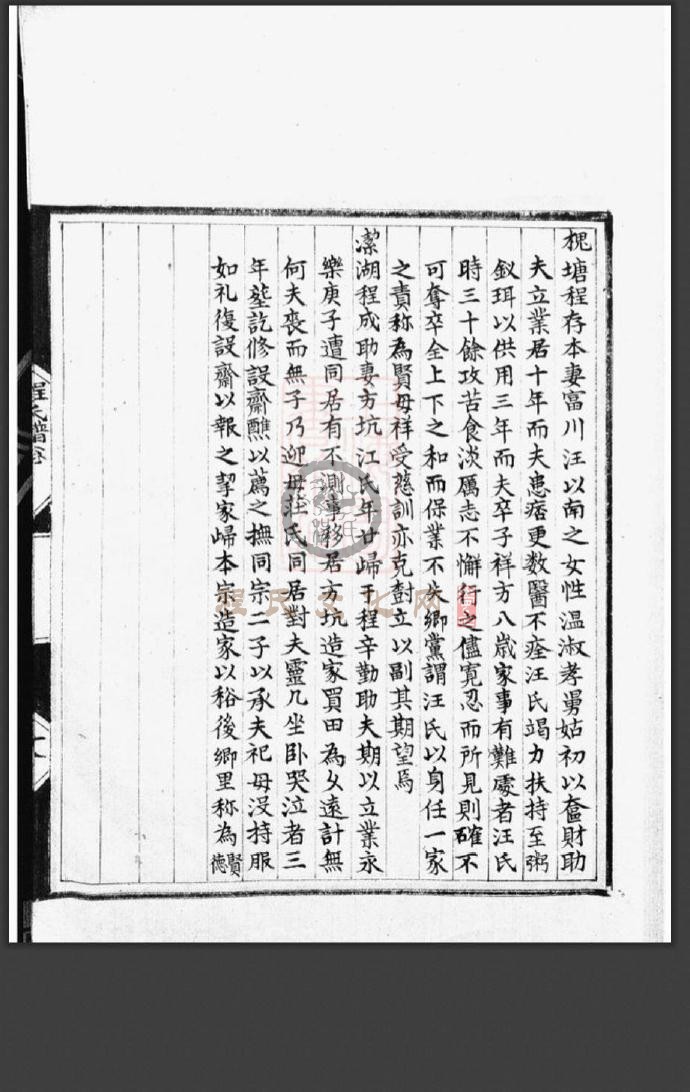 槐塘程存本妻富川汪以南之女性温淑孝舅姑初以奩財助
夫立業居十年而夫患痞更数醫不痊汪氏竭力扶持至粥
釵珥以供用三年而夫卒子祥方八歳家事有難處者汪氏
時三十餘攻苦食淡厲志不懈行之儘寛忍而所見則確不
可奪卒全上下之和而保業不失鄉黨謂汪氏以身任一家
之責称為賢母祥受慈訓亦克尌立以副其期望焉
潔湖程成助妻方坑江氏年廿歸于程辛勤助夫期以立業永
樂庚子遭同居有不測事移居方坑造家買田為久遠計無
何夫喪而無子乃迎母莊氏同居對夫靈几坐卧哭泣者三
年塟訖修設齋醮以薦之撫同宗二子以承夫祀母沒持服
如礼復設齋以報之挈家歸本宗造家以裕後鄉里称為賢德
程氏譜
程氏文化网